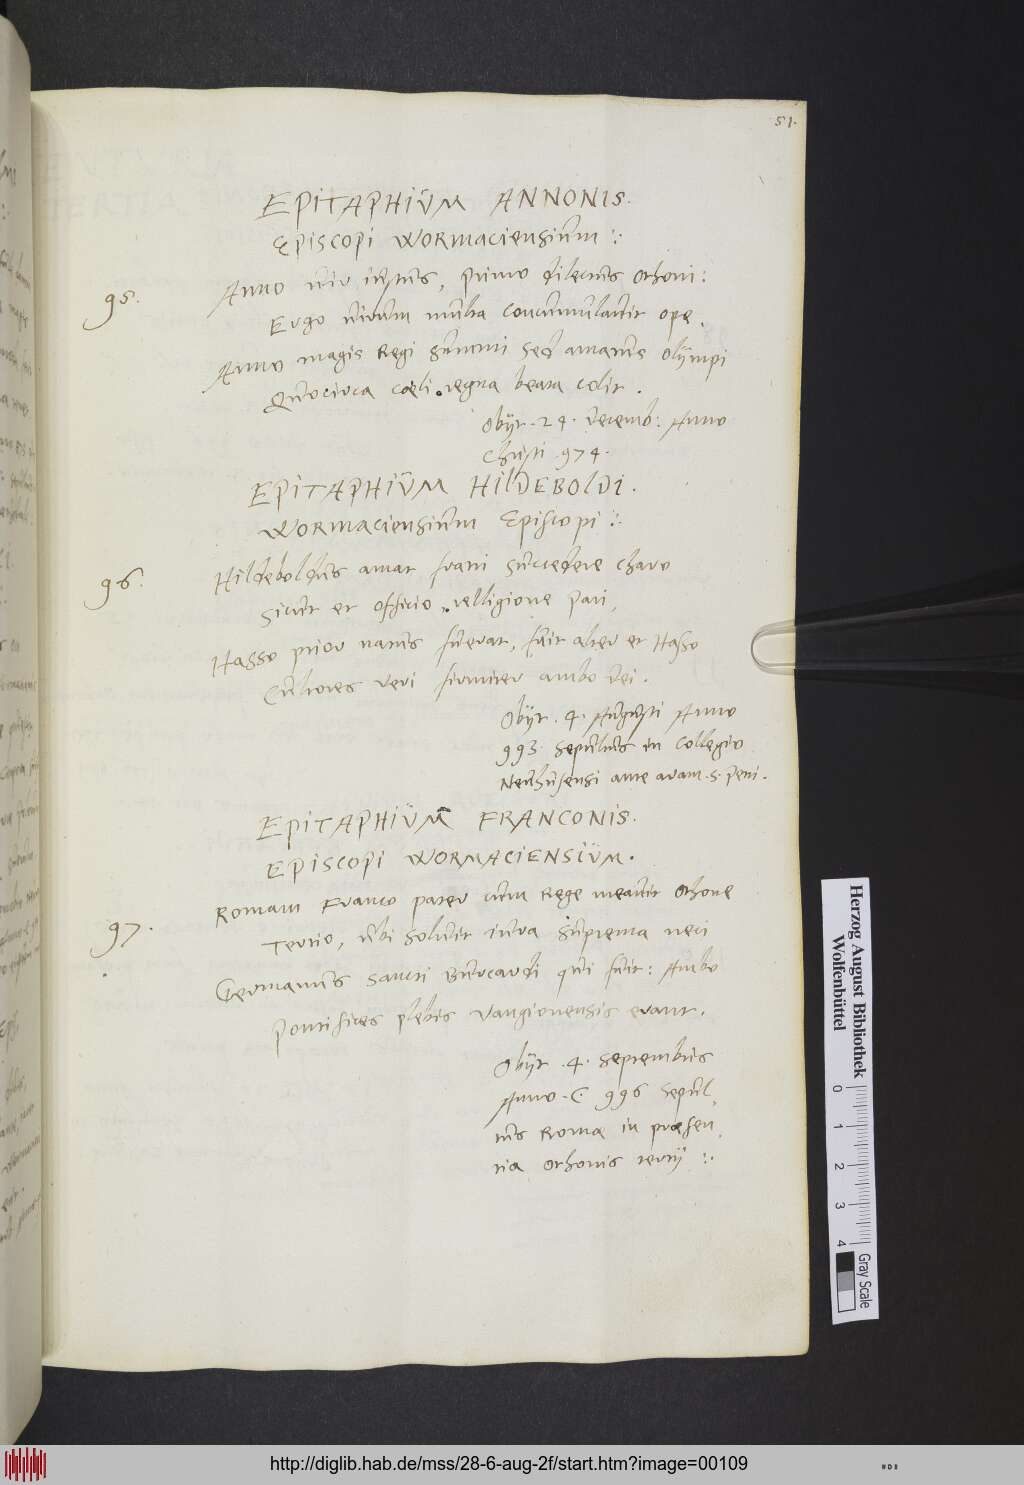 51.
EPITAPHIŬM ANNONIS.
Episcopi Wormaciensium :.
95.
Anno vir iustus, primo dilectus Othoni:
Ergo virum multa concumulavit ope.
Anno magis Regi summi sed amatus olympi
Quocirca cæli regna beata colit.
Obijt . 24 . Decemb: Anno
Christi . 974 .
EPITAPHIŬM HILDEBOLDI.
Wormaciensium Episcopi :.
96.
Hildeboldus amat fratri succedere charo
Sicut et officio relligione pari,
Hasso prior natus fuerat, fuit alter et Hasso
Cultores veri firmiter ambo Dei.
Obijt . 4 . Augusti Anno
993 . sepultus in Collegio
Neuhusensi ante aram . S . Petri .
EPITAPHIŬM FRANCONIS.
EPISCOPI WORMACIENSIŬM.
97.
Romam Franco pater cum Rege meavit Othone
Tertio, ubi solvit iura suprema neci
Germanus sancti Burcardi qui fuit: Ambo
Pontifices plebis Vangionensis erant.
Obijt . 4 . Septembris
Anno . C . 996 Sepul,
tus Romæ in præsen,
tia Othonis tertij :.
Herzog August Bibliothek
Wolfenbüttel
0 1 2 3 4
Gray Scale
http://diglib.hab.de/mss/28-6-aug-2f/start.htm?image=00109